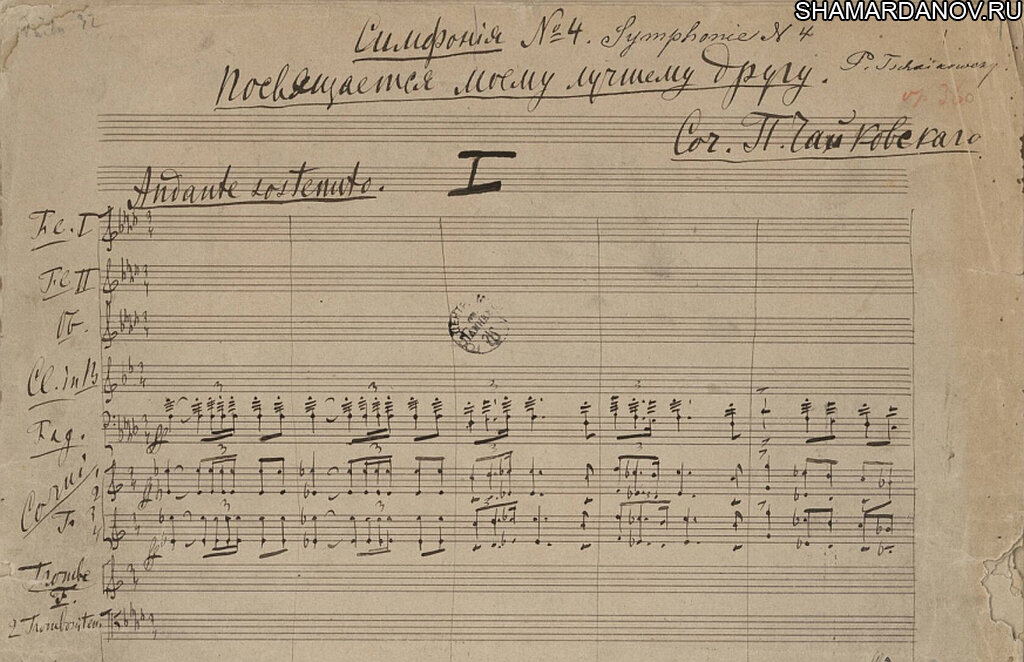 SHAMARDANOV.RU
Симфонія №4. Symphonie N 4
Посвящается моему лучшему другу. P. Tschaikowsky.
Соч. П. Чайковскаго
I
Andante sostenuto.
Fl. I
Fl II
Ob.
Cl. in B
3 3 3 3
Fag.
ff
Corni 1 2
ff
F. 3 4
ff
Trombe
F.
2 Tromboniten.